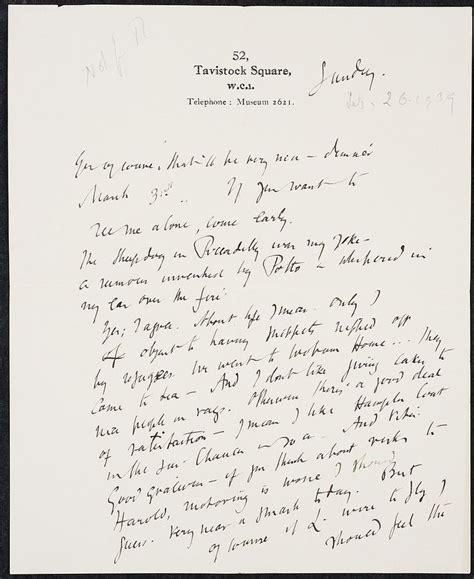 52,
Tavistock Square,
W.C.1.
Telephone: Museum 2621.
Sunday.
Feb. 26. 1939
Yes of course, that'll be very nice – dinner
March 3rd.. If you want to
see me alone, come early.
The sheepdog in Piccadilly was my joke –
a rumour invented by Potto – whispered in
my ear over the fire.
Yes; I agree. About life I mean. Only I
object to having
by refugees We went to Woburn House... They
came to tea – And I dont like giving cakes to
nice people in rags. Otherwise there's a good deal
of satisfaction – I mean I like Hampton Court
in the sun. Chaucer And Vita.
Good Gracious – if you think about risks to
Harold, motoring is worse I should
guess. Very near a smash today. But
of course if L. were to fly I
should feel the